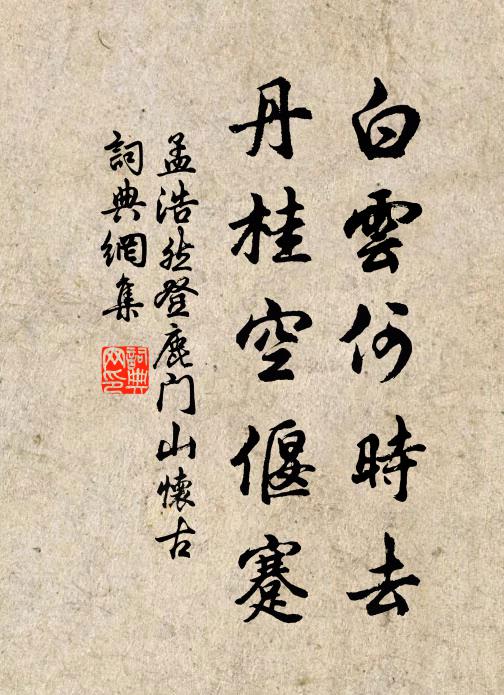 白雲何時去
丹桂空偃蹇
孟浩然登鹿门山懷古
詞典網集
詞典网印